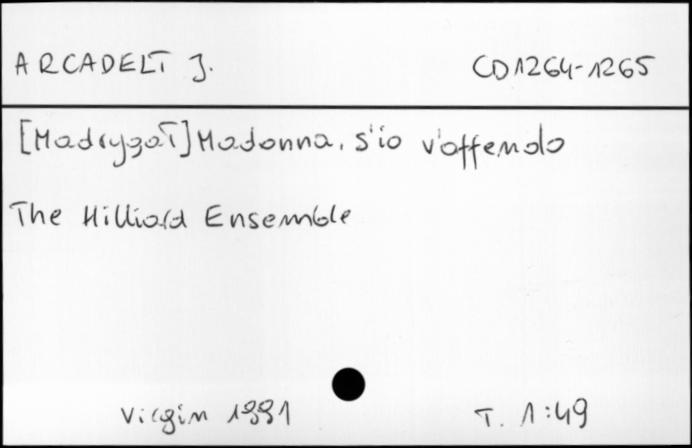 ARCADELT J. CD1264-1265
[Madrygał] Madonna, s'io v'offendo
The Hilliard Ensemble
Virgin 1991 T. 1:49